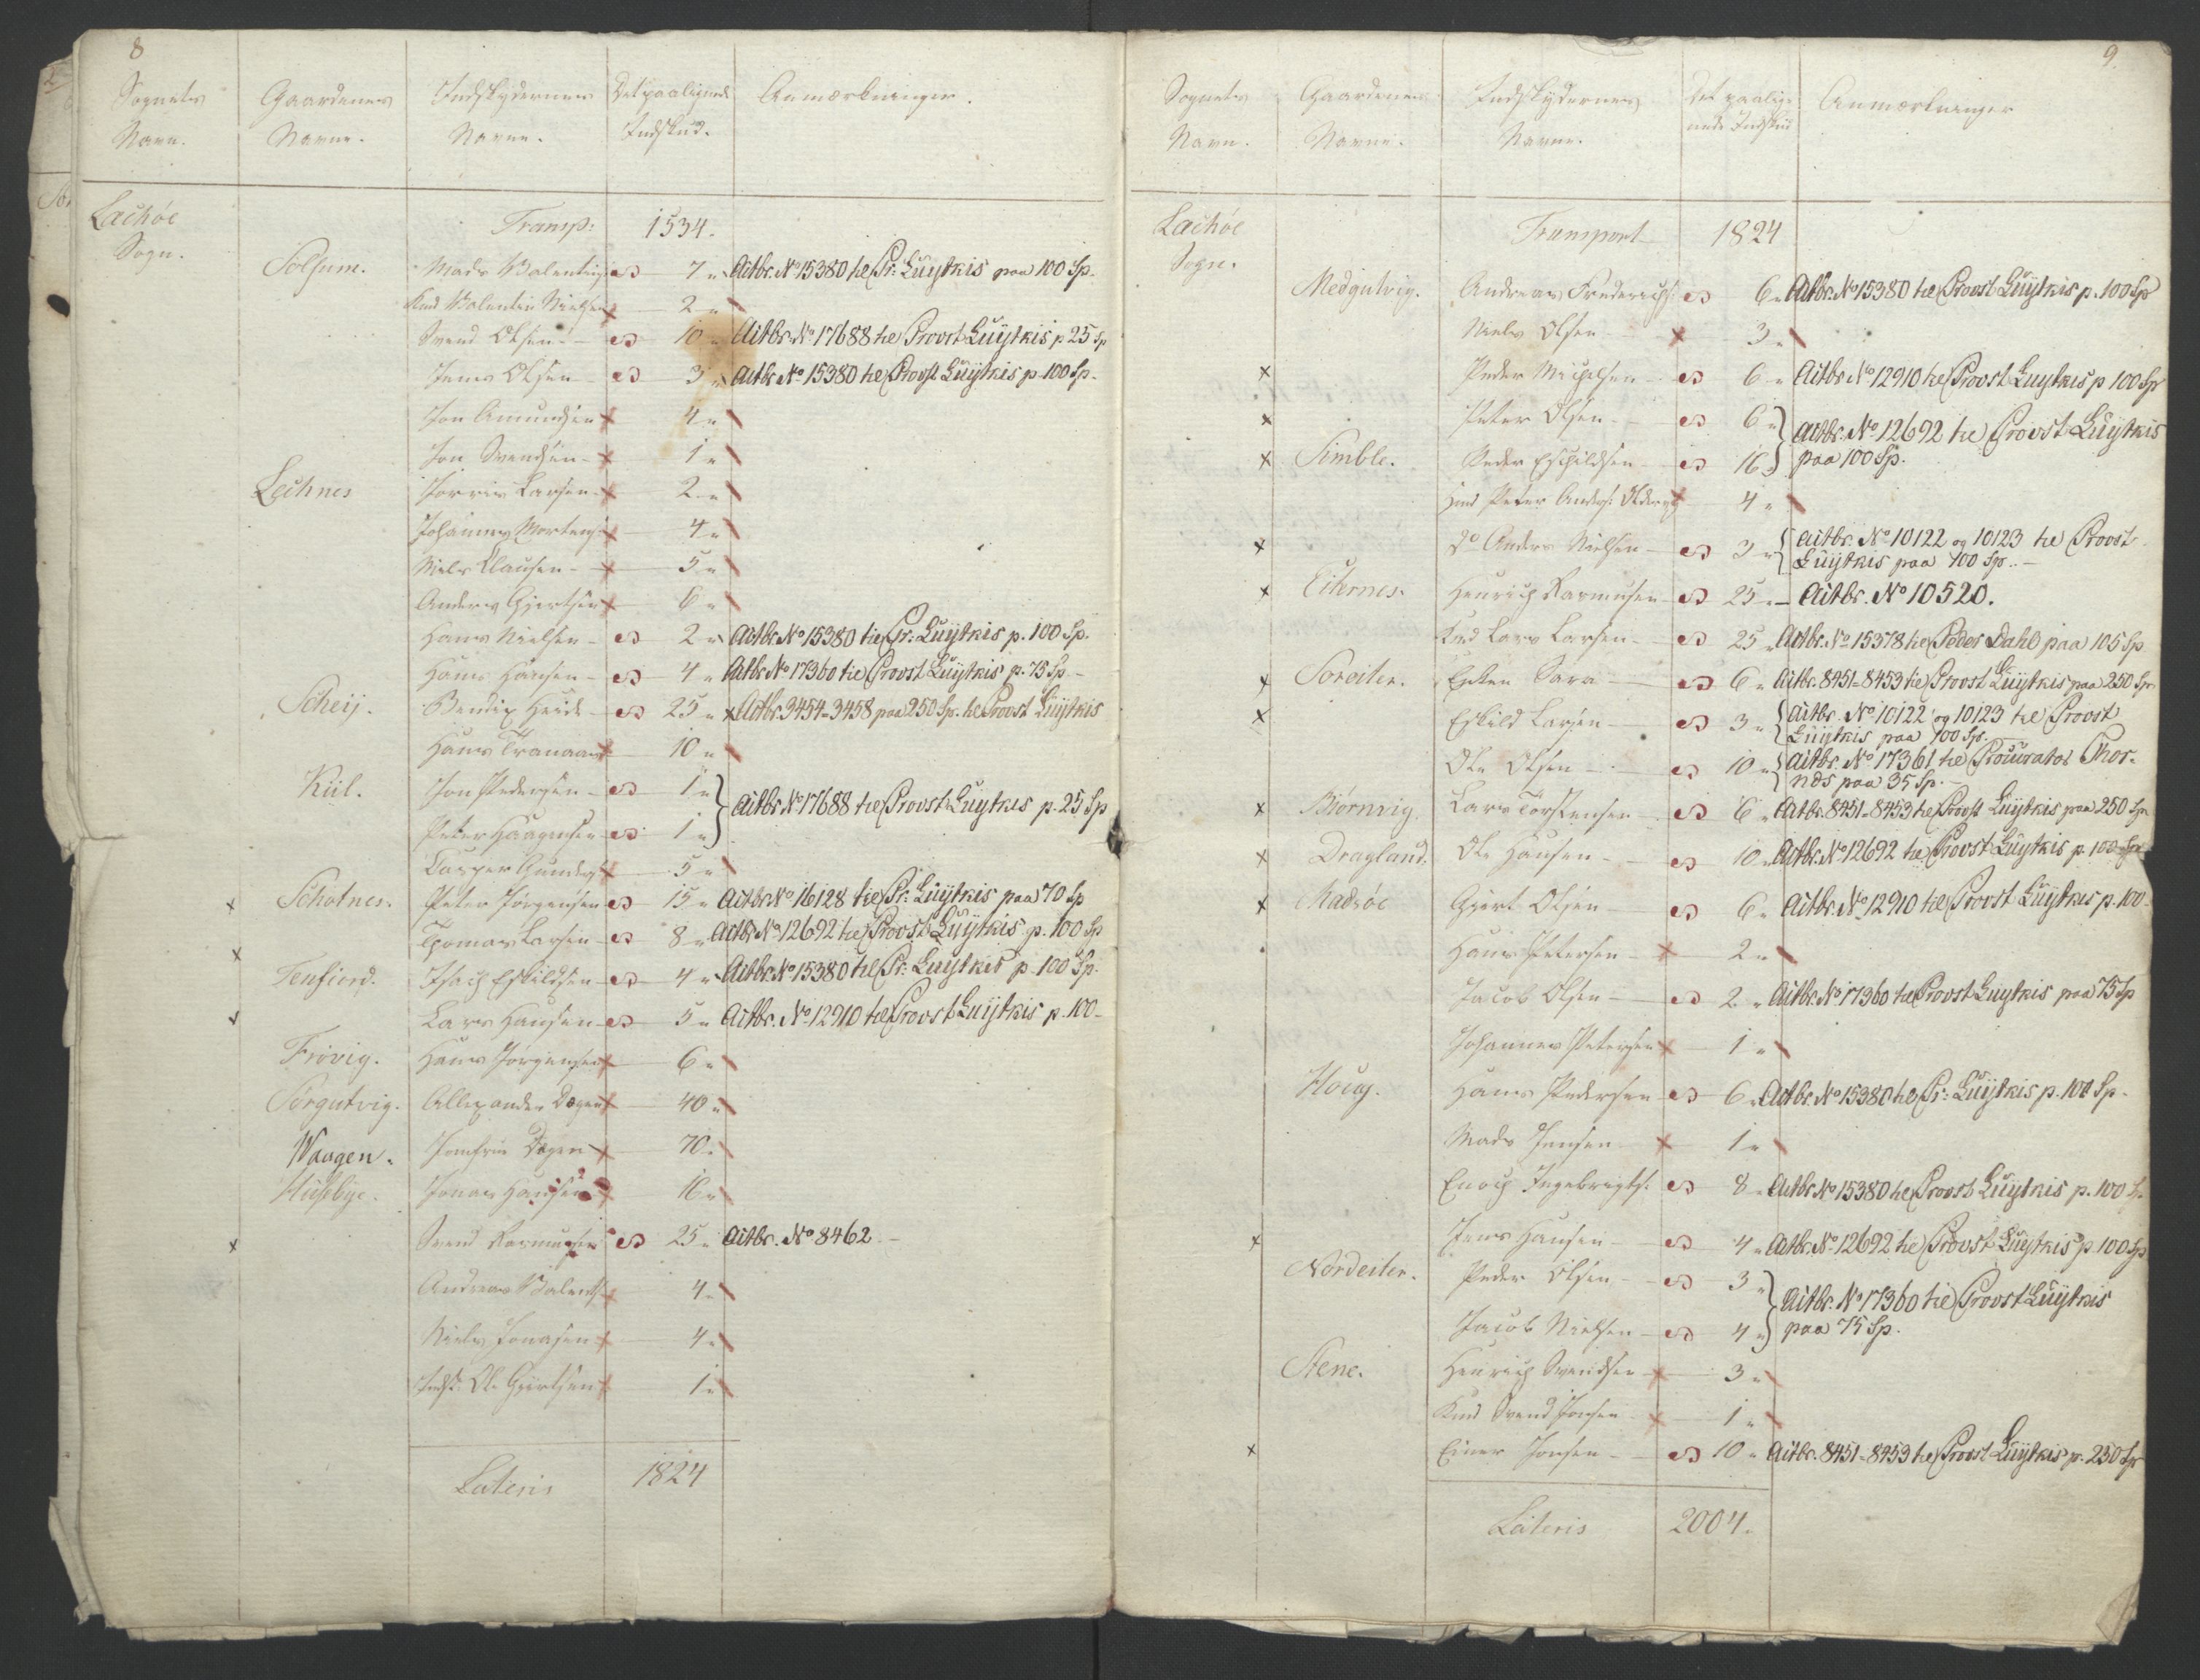 8
Sognets Navn. Gaardenes Navne. Indskydernes Navne. Det paaligende Indskud. Anmærkninger.
Lachöe Sogn. Transp: 1534.
Solsum. Mads Valentins 7 " Actbr. No 15380 til Pr: Lüytkis paa 100 Sp.
Knud Valentin Nielsen 2 "
Svend Olsen 10 " Actbr. No 17688 til Provst Lüytkis p 25 Sp
Jens Olsen 3 " Actbr No 15380 til Provst Lüytkis p. 100 Sp.
Jon Amundsen 4 "
Jon Svendsen 1 "
Lechnes Torris Larsen 2 "
Johannes Mortens 4 "
Niels Clausen 5 "
Anders Gjertsen 6 "
Hans Nielsen 2 " Actbr No 15380 til Pr: Lüytkis p. 100 Sp.
Hans Hansen 4 " Actbr No 17360 til Provst Lüytkis p. 75 Sp
Scheij. Bendix Heide 25 " x Actbr. 3454-3458 paa 250 Sp. til Provst Lüytkis
Hans Tranaas 10 "
Kiil. Jon Pedersen 1 " } Actbr. No 17688 til Provst Lüytkis p. 25 Sp
Peter Haagensen 1 "
Casper Gunders 5 "
x Schotnes. Peter Jörgensen 15 " Actbr No 16128 til Pr: Lüytkis paa 70 Sp
x Thomas Larsen 8 " Actbr No 12692 til Provst Lüytkis p. 100 Sp
Tenfiord. Isach Eskildsen 4 " Actbr. No 15380 til Pr: Lüytkis p. 100 Sp.
Lars Hansen 5 " Actbr. No 12910 til Provst Lüytkis p. 100
Frövig. Hans Jörgensen 6 "
Sörgutvig. Allexander Dægen 40 "
Waagen. Jomfrue Dægen 70 "
Husbye. Jonas Hansen 16 "
x Svend Rasmusen 25 " Actbr. No 8462
Andreas Valents 4 "
Niels Jonasen 4 "
Indst. Ole Gjertsen 1 "
Lateris 1824
9.
Sognets Navn. Gaardenes Navne. Indskydernes Navne. Det paaligende Indskud Anmærkninger
Lachöe Sogn. Transport 1824
Medgutvig. Andreas Friderichs: 6 " Actbr. No 15380 til Provst Lüytkis p. 100 Sp
Niels Olsen 3 "
x Peder Michelsen 6 " Actbr No 12910 til Provst Lüytkis p 100 Sp
x Peter Olsen 6 " } Actbr. No 12692 til Provst Lüytkis
x Simble. Peder Eschildsen 16 } paa 100 Sp.
Huusmd Peter Anders: 4 "
x Do Anders Nielsen 3 " { Actbr. No 10122 og 10123 til Provst Lüytkis paa 100 Sp.
x Eiternes. Henrich Rasmusen 25 " Actbr. No 10520.
Knd Lars Larsen 25 " Actbr. No 15378 til Peder Dahl paa 105 Sp
x Soreiter. Enken Sara 6 " Actbr. 8451-8453 til Provst Lüytkis paa 250 Sp
x Eskild Larsen 3 " { Actbr. No 10122 og 10123 til Provst Lüytkis paa 100 Sp.
Ole Olsen 10 " { Actbr. No 17361 til Procurator Thornds paa 35 Sp.
x Björnvig. Lars Torstensen 6 " Actbr. 8451-8453 til Provst Lüytkis paa 250 Sp
x Dragland. Ole Hansen 10 " Actbr. No 12692 til Provst Lüytkis p. 100 Sp
x Madsöe Gjert Olsen 6 " Actbr. No 12910 til Provst Lüytkis p. 100
Hans Petersen 2 "
Jacob Olsen 2 " Actbr. No 17360 til Provst Lüytkis paa 75 Sp
Johannes Petersen 1 "
Houg. Hans Pedersen 6 " Actbr. No 15380 til Pr: Lüytkis p. 100 Sp.
Mads Jensen 1 "
Enoch Ingebrigts: 8 " Actbr. No 15380 til Provst Lüytkis p. 100 Sp.
x Jens Hansen 4 " Actbr. No 12692 til Provst Lüytkis p 100 Sp
Nordeiter. Peder Olsen 3 " } Actbr. No 17360 til Provst Lüytkis
Jacob Nielsen 4 " } paa 75 Sp.
Stene. Henrich Svendsen 3 "
Knd Svend Jonsen 1 "
x Einer Jonsen 10 " Actbr. 8451-8453 til Provst Lüytkis p. 250 Sp
Lateris 2004.